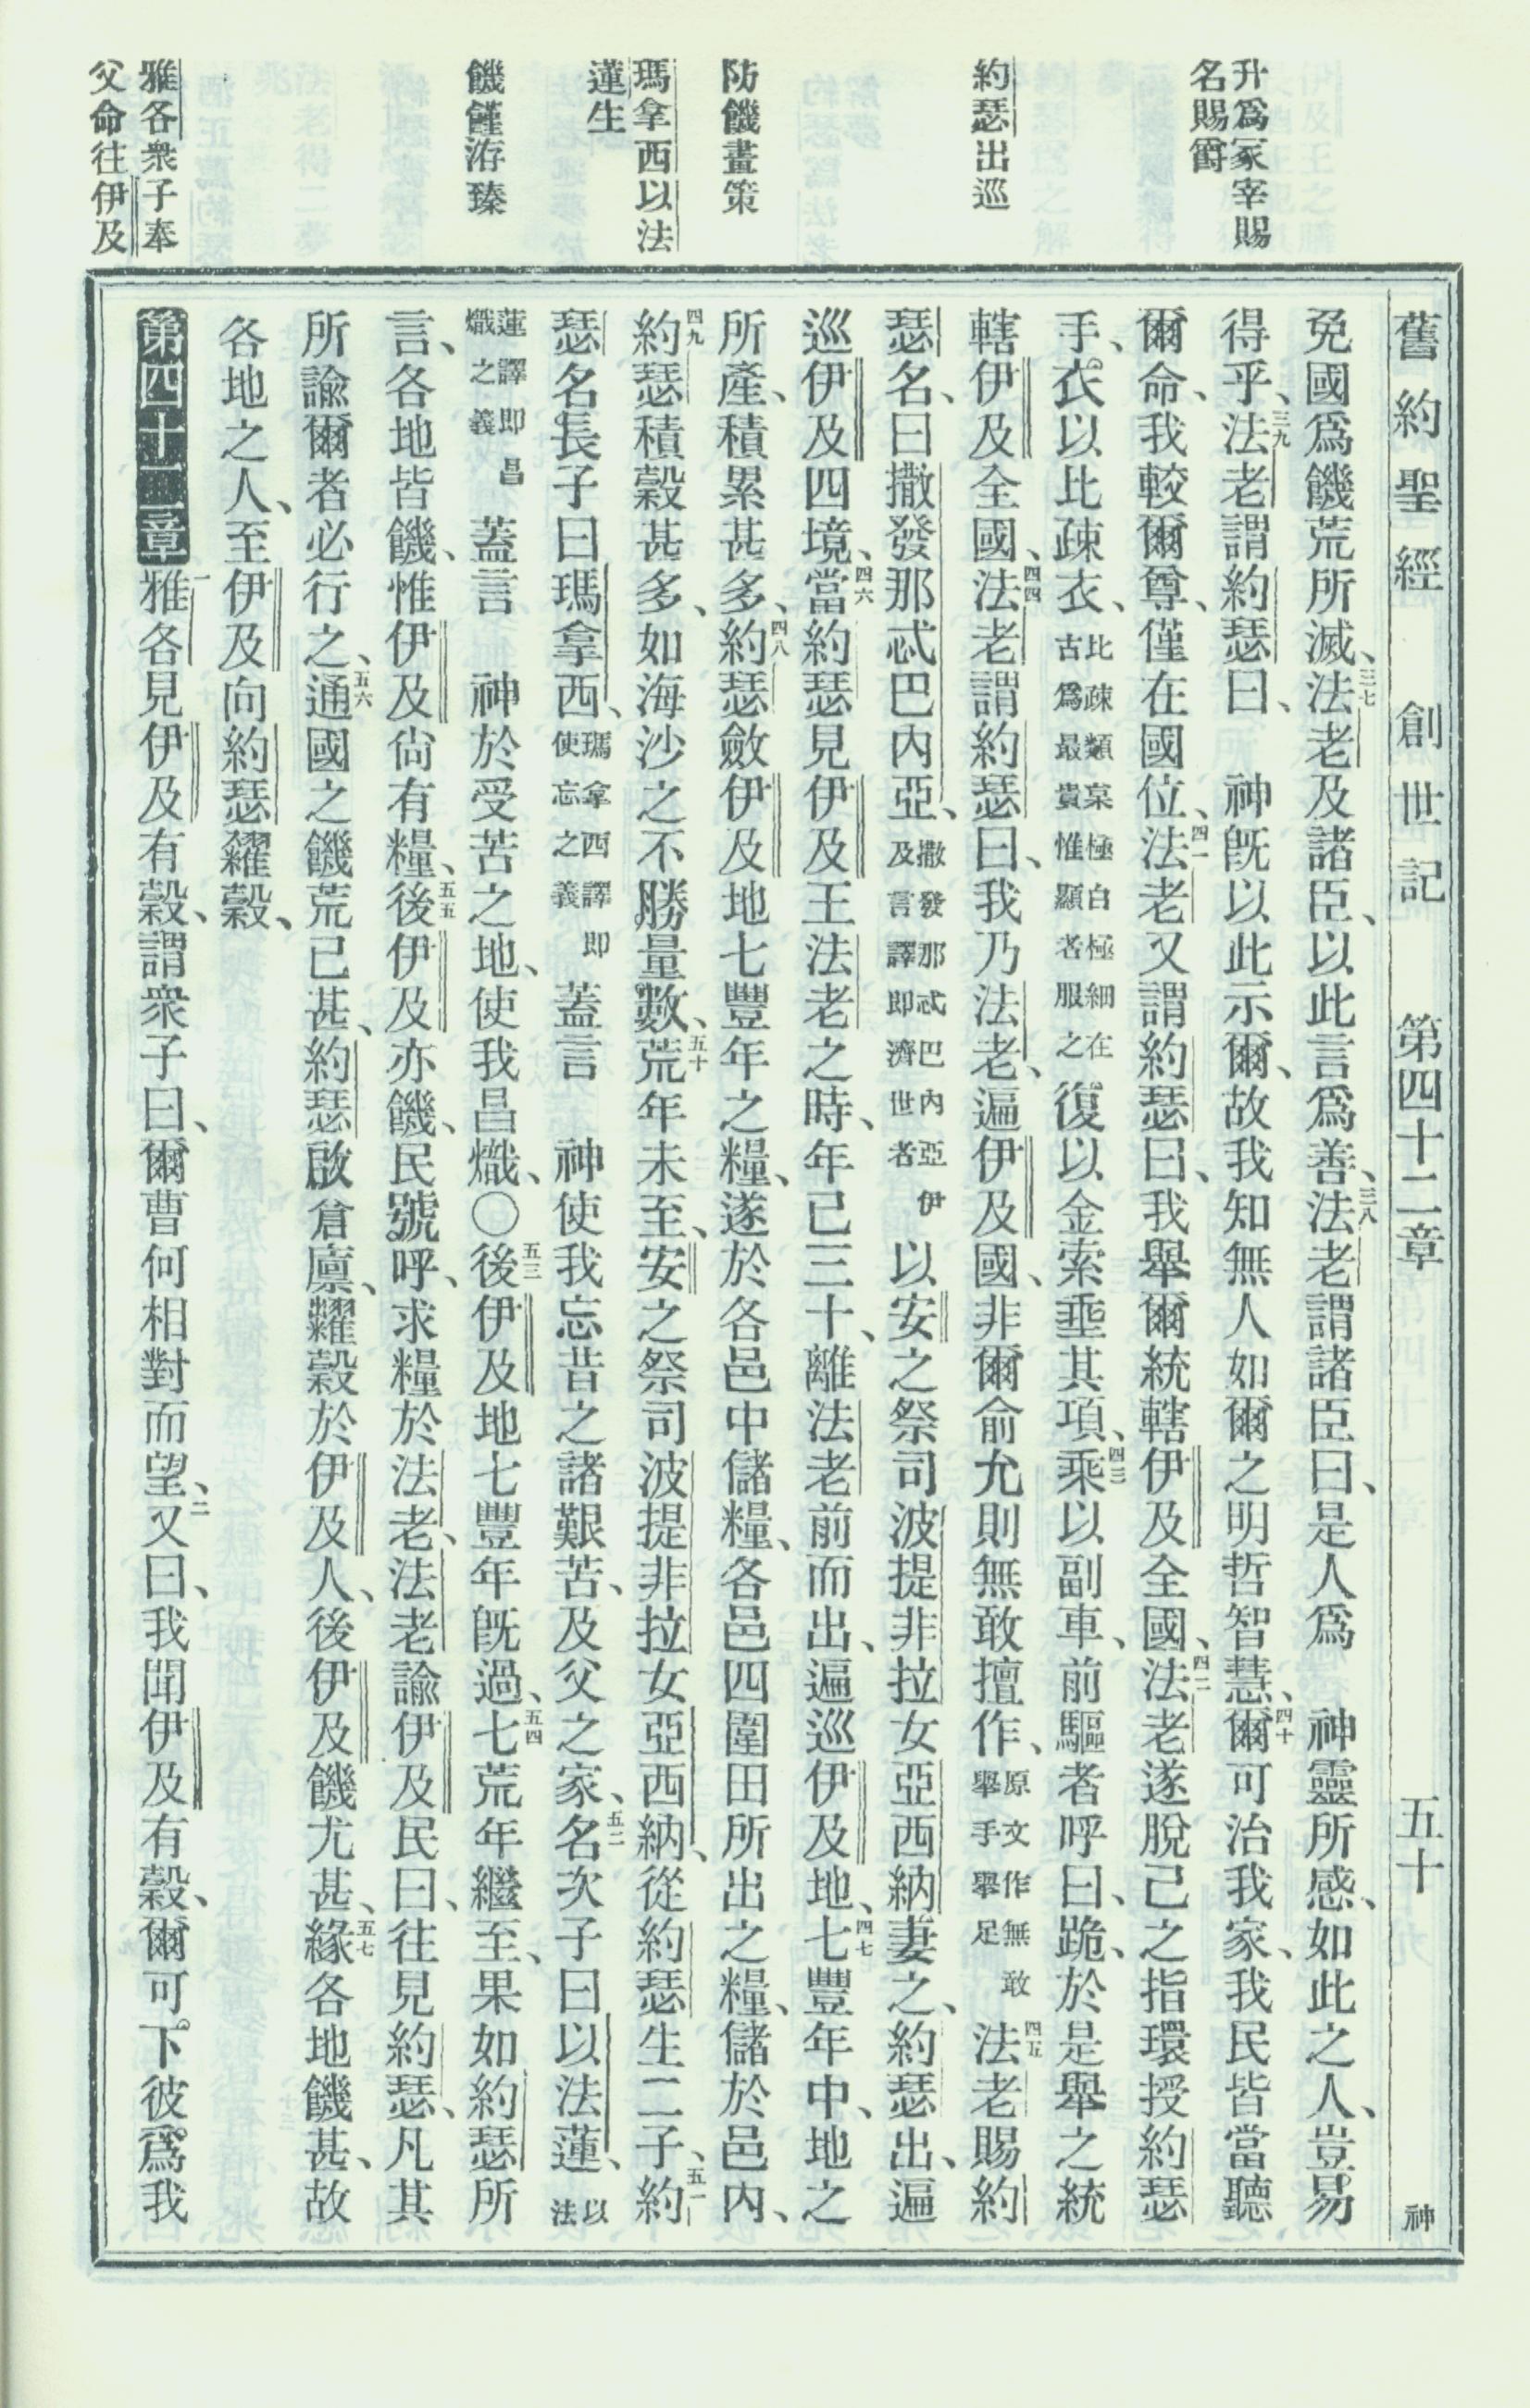 升爲冢宰賜
名賜爵
約瑟出巡
防饑畫策
瑪拿西以法
蓮生
饑饉洊臻
雅各衆子奉
父命往伊及
舊約聖經 創世記 第四十二章 五十 神
免國爲饑荒所滅、三七法老及諸臣、以此言爲善、三八法老謂諸臣曰、是人爲 神靈所感、如此之人、豈易
得乎、三九法老謂約瑟曰、 神旣以此示爾、故我知無人如爾之明哲智慧、四十爾可治我家、我民皆當聽
爾命、我較爾尊、僅在國位、四一法老又謂約瑟曰、我舉爾統轄伊及全國、四二法老遂脫己之指環授約瑟
手、衣以比疎衣、比疎類枲極白極細在古爲最貴惟顯者服之復以金索垂其項、四三乘以副車、前驅者呼曰、跪、於是舉之統
轄伊及全國、四四法老謂約瑟曰、我乃法老、遍伊及國、非爾俞允則無敢擅作、原文作無敢舉手舉足 四五法老賜約
瑟名、曰撒發那忒巴內亞、撒發那忒巴內亞伊及言譯即濟世者 以安之祭司波提非拉女亞西納妻之、約瑟出、遍
巡伊及四境、四六當約瑟見伊及王法老之時、年已三十、離法老前而出、遍巡伊及地、四七七豐年中、地之
所產、積累甚多、四八約瑟斂伊及地七豐年之糧、遂於各邑中儲糧、各邑四圍田所出之糧、儲於邑內、
四九約瑟積穀甚多、如海沙之不勝量數、五十荒年未至、安之祭司波提非拉女亞西納、從約瑟生二子、五一約
瑟名長子曰瑪拿西、瑪拿西譯即使忘之義 蓋言 神使我忘昔之諸艱苦、及父之家、五二名次子曰以法蓮、以法
蓮譯即昌熾之義 蓋言 神於受苦之地、使我昌熾、〇五三後伊及地七豐年旣過、五四七荒年繼至、果如約瑟所
言、各地皆饑、惟伊及尙有糧、五五後伊及亦饑、民號呼、求糧於法老、法老諭伊及民曰、往見約瑟、凡其
所諭爾者必行之、五六通國之饑荒已甚、約瑟啟倉廩、糶穀於伊及人、後伊及饑尤甚、五七緣各地饑甚、故
各地之人、至伊及向約瑟糴穀、
第四十二章 一雅各見伊及有穀、謂衆子曰、爾曹何相對而望、二又曰、我聞伊及有穀、爾可下彼、爲我